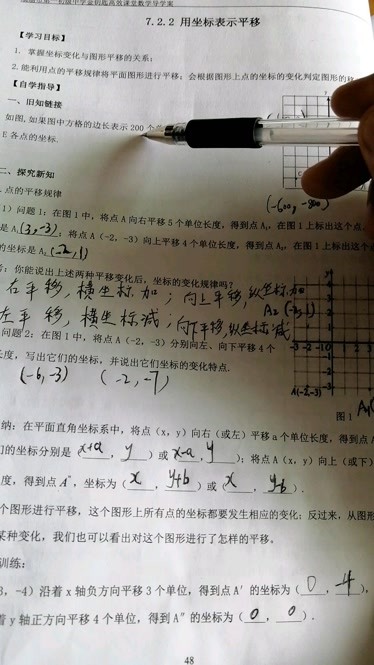 第一初级中学金钥匙高效课堂数学导学案
7.2.2 用坐标表示平移
【学习目标】
1. 掌握坐标变化与图形平移的关系;
2.能利用点的平移规律将平面图形进行平移;会根据图形上点的坐标的变化判定图形的移
【自学指导】
一、旧知链接
如图,如果图中方格的边长表示 200 个
E 各点的坐标.
(-600, -800)
二、探究新知
.点的平移规律
1) 问题 1: 在图 1 中, 将点 A 向右平移 5 个单位长度, 得到点 A₁, 在图 1 上标出这个点
是 A₁(3,-3); 将点 A (-2, -3) 向上平移 4 个单位长度, 得到点 A₂, 在图 1 上标出这个
的坐标是 A₂(-2,1)
: 你能说出上述两种平移变化后, 坐标的变化规律吗?
右平移,横坐标加;向上平移,纵坐标加
左平移,横坐标减;向下平移,纵坐标减
A₂(-2,1)
问题 2: 在图 1 中, 将点 A (-2, -3) 分别向左、向下平移 4 个
长度, 写出它们的坐标, 并说出它们坐标的变化特点.
(-6,-3) (-2,-7)
4
3
2
1
-3 -2 -1 0 1 2 3
-1
-2
-3
A(-2,-3)
图 1 A₁
纳: 在平面直角坐标系中, 将点 (x, y) 向右 (或左) 平移 a 个单位长度, 得到点 A
们的坐标分别是 ( x+a , y ) 或 ( x-a , y ); 将点 A (x, y) 向上 (或下)
度, 得到点 A″, 坐标为 ( x , y+b ) 或 ( x , y-b ).
个图形进行平移, 这个图形上所有点的坐标都要发生相应的变化; 反过来, 从图形
某种变化, 我们也可以看出对这个图形进行了怎样的平移.
训练:
3, -4) 沿着 x 轴负方向平移 3 个单位, 得到点 A′ 的坐标为 ( 0 , -4 ),
着 y 轴正方向平移 4 个单位, 得到 A″ 的坐标为 ( 0 , 0 ).
48